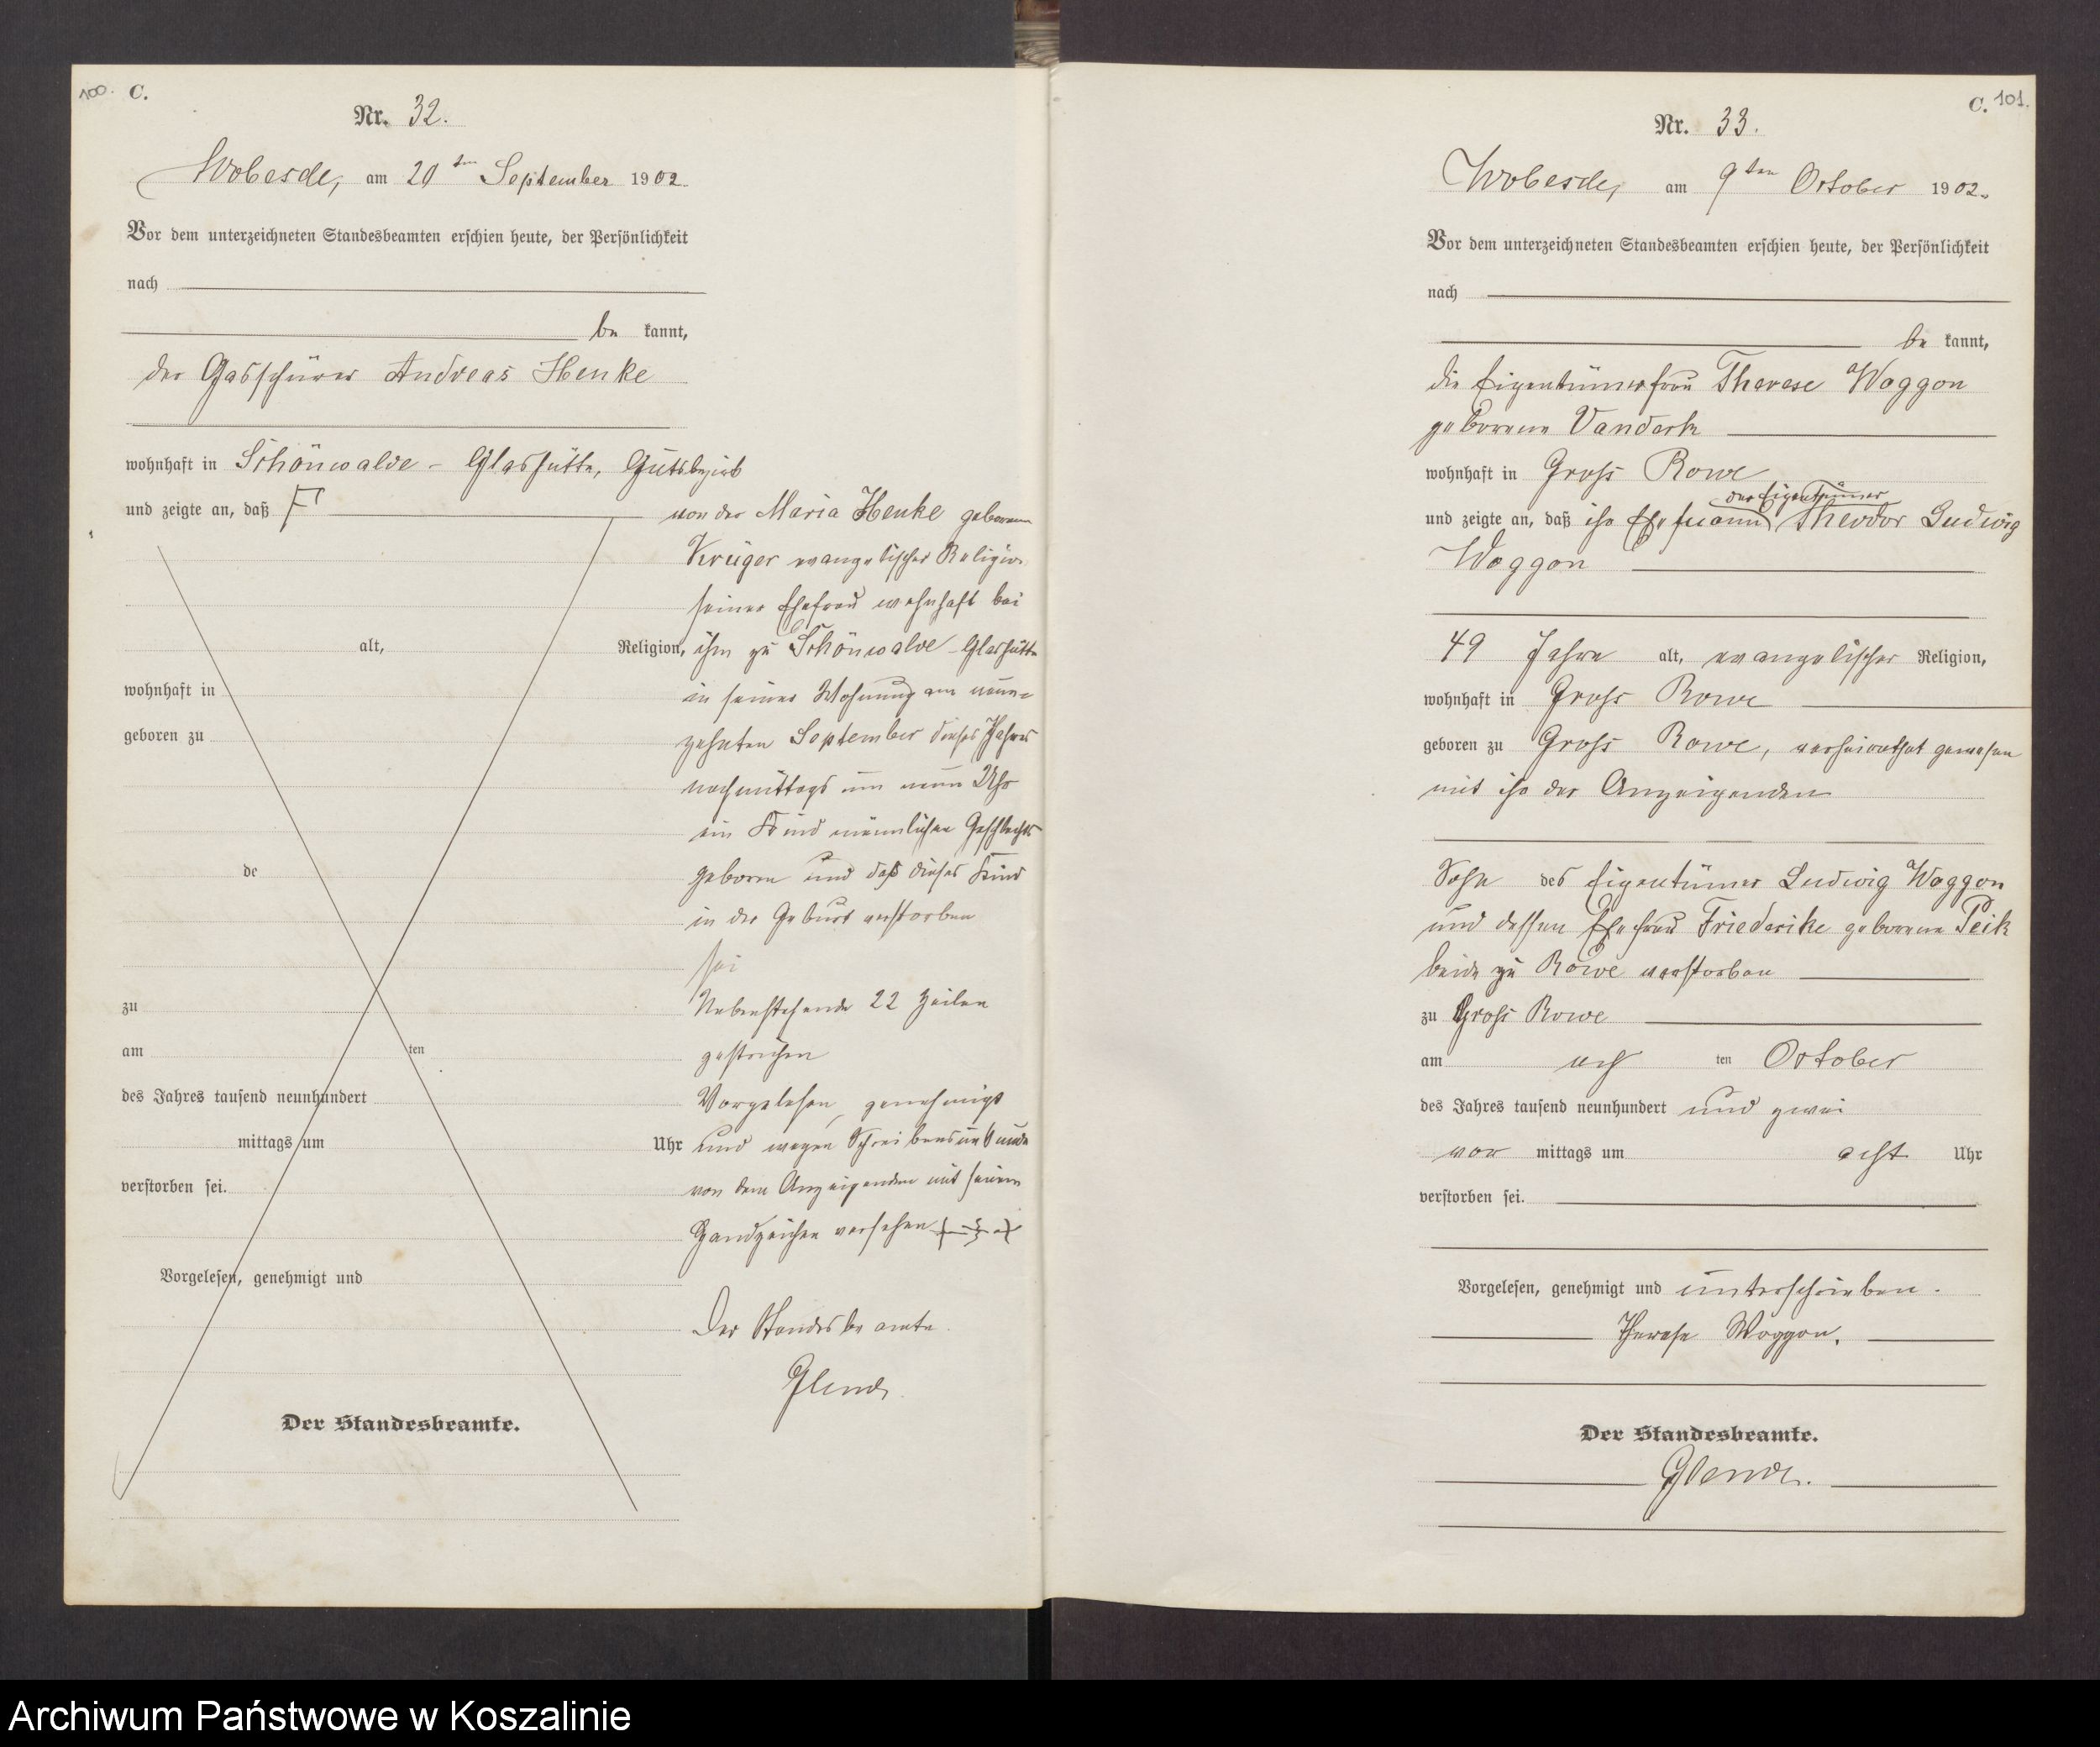 100.
C.
Nr. 32.
Wobesde, am 20ten September 1902.
Vor dem unterzeichneten Standesbeamten erschien heute, der Persönlichkeit
nach
be kannt,
der Gasschürer Andreas Henke
wohnhaft in Schönwalde - Glashütte, Gutsbezirk
und zeigte an, daß
von der Maria Henke geborenen
Krüger evangelischer Religion
seiner Ehefrau wohnhaft bei
alt, Religion, ihm zu Schönwalde - Glashütte
wohnhaft in in seiner Wohnung am neun=
geboren zu zehnten September dieses Jahres
nachmittags um neun Uhr
ein Kind männlichen Geschlechts
de geboren und daß dieses Kind
in der Geburt verstorben
sei
zu Nebenstehende 22 Zeilen
am ten gestrichen
des Jahres tausend neunhundert Vorgelesen, genehmigt
mittags um Uhr und wegen Schreibensunkunde
verstorben sei. von dem Anzeigenden mit seinem
Handzeichen versehen +++
Vorgelesen, genehmigt und
Der Standesbeamte.
Glend.
Der Standesbeamte.
C. 101.
Nr. 33.
Wobesde, am 9ten October 1902.
Vor dem unterzeichneten Standesbeamten erschien heute, der Persönlichkeit
nach
be kannt,
die Eigentümerfrau Therese Woggon
geborene Vanderk
wohnhaft in Gross Rowe
der Eigentümer
und zeigte an, daß ihr Ehemann Theodor Ludwig
Woggon
49 Jahre alt, evangelischer Religion,
wohnhaft in Gross Rowe
geboren zu Gross Rowe, verheirathet gewesen
mit ihr der Anzeigenden
Sohn des Eigentümer Ludwig Woggon
und dessen Ehefrau Friederike geborene Peik
beide zu Rowe verstorben
zu Gross Rowe
am ach ten October
des Jahres tausend neunhundert und zwei
vor mittags um acht Uhr
verstorben sei.
Vorgelesen, genehmigt und unterschrieben.
Therese Woggon.
Der Standesbeamte.
Glend.
Archiwum Państwowe w Koszalinie